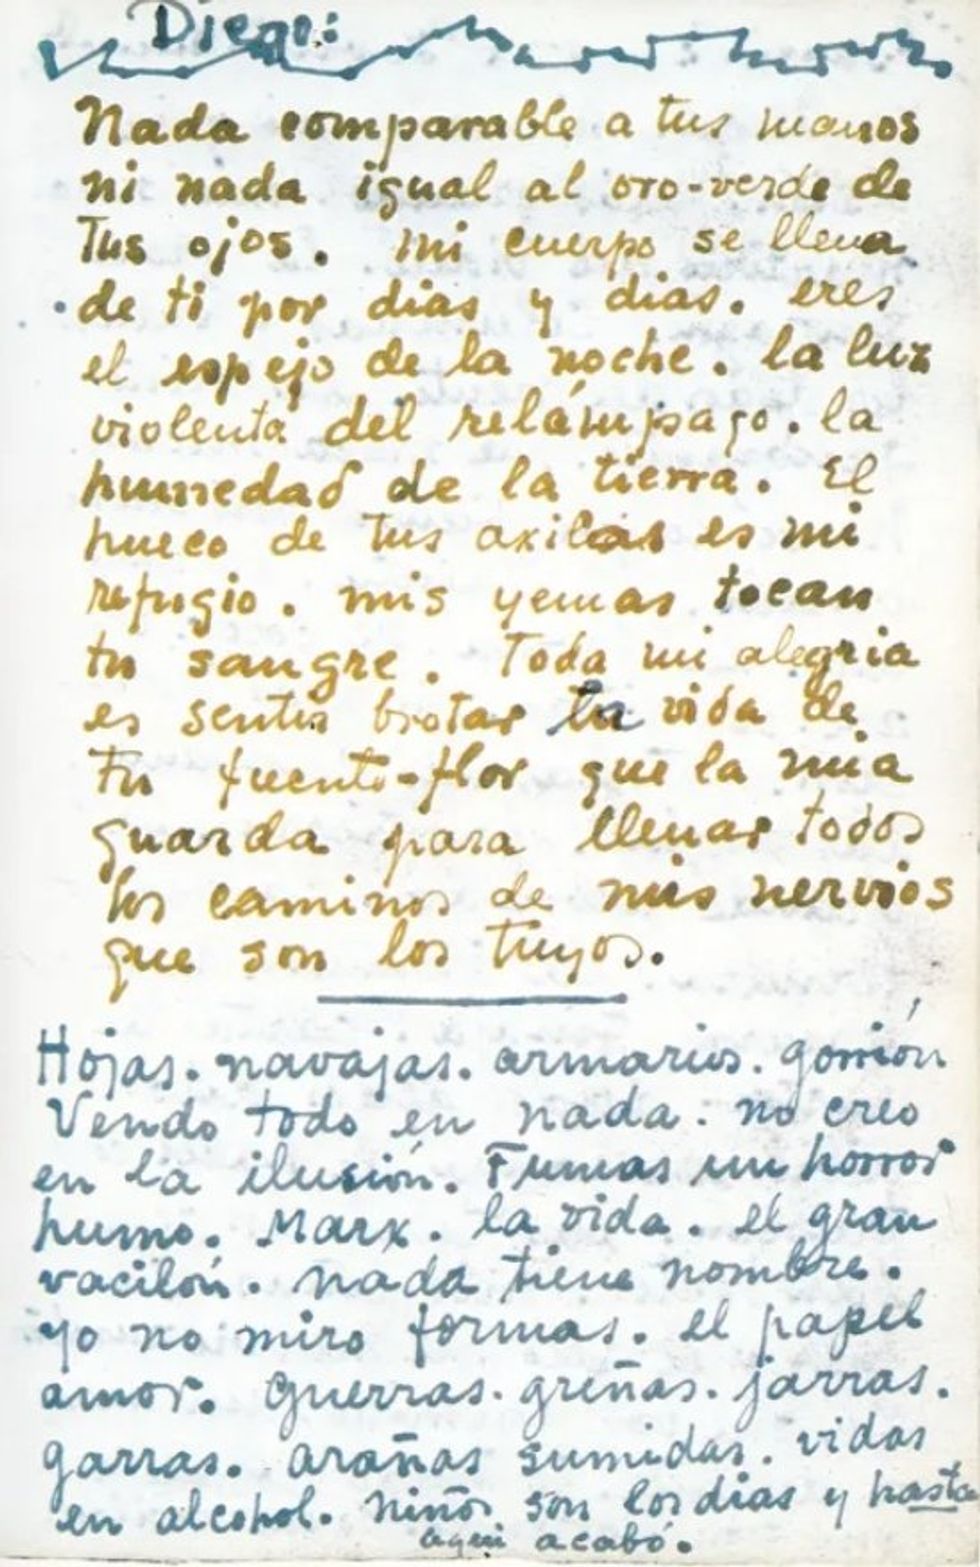 Diego:
Nada comparable a tus manos
ni nada igual al oro-verde de
Tus ojos. mi cuerpo se llena
de ti por dias y dias. eres
el espejo de la noche. la luz
violenta del relámpago. la
humedad de la tierra. El
hueco de tus axilas es mi
refugio. mis yemas tocan
tu sangre. Toda mi alegria
es sentir brotar la vida de
tu fuente-flor que la mia
guarda para llenar todos
los caminos de mis nervios
que son los tuyos.
Hojas. navajas. armarios. gorrión
Vendo todo en nada. no creo
en la ilusión. Fumas un horror
humo. Marx. la vida. el gran
vacilón. nada tiene nombre.
yo no miro formas. el papel
amor. guerras. greñas. jarras.
garras. arañas sumidas. vidas
en alcohol. Niños son los dias y hasta
aqui acabó.